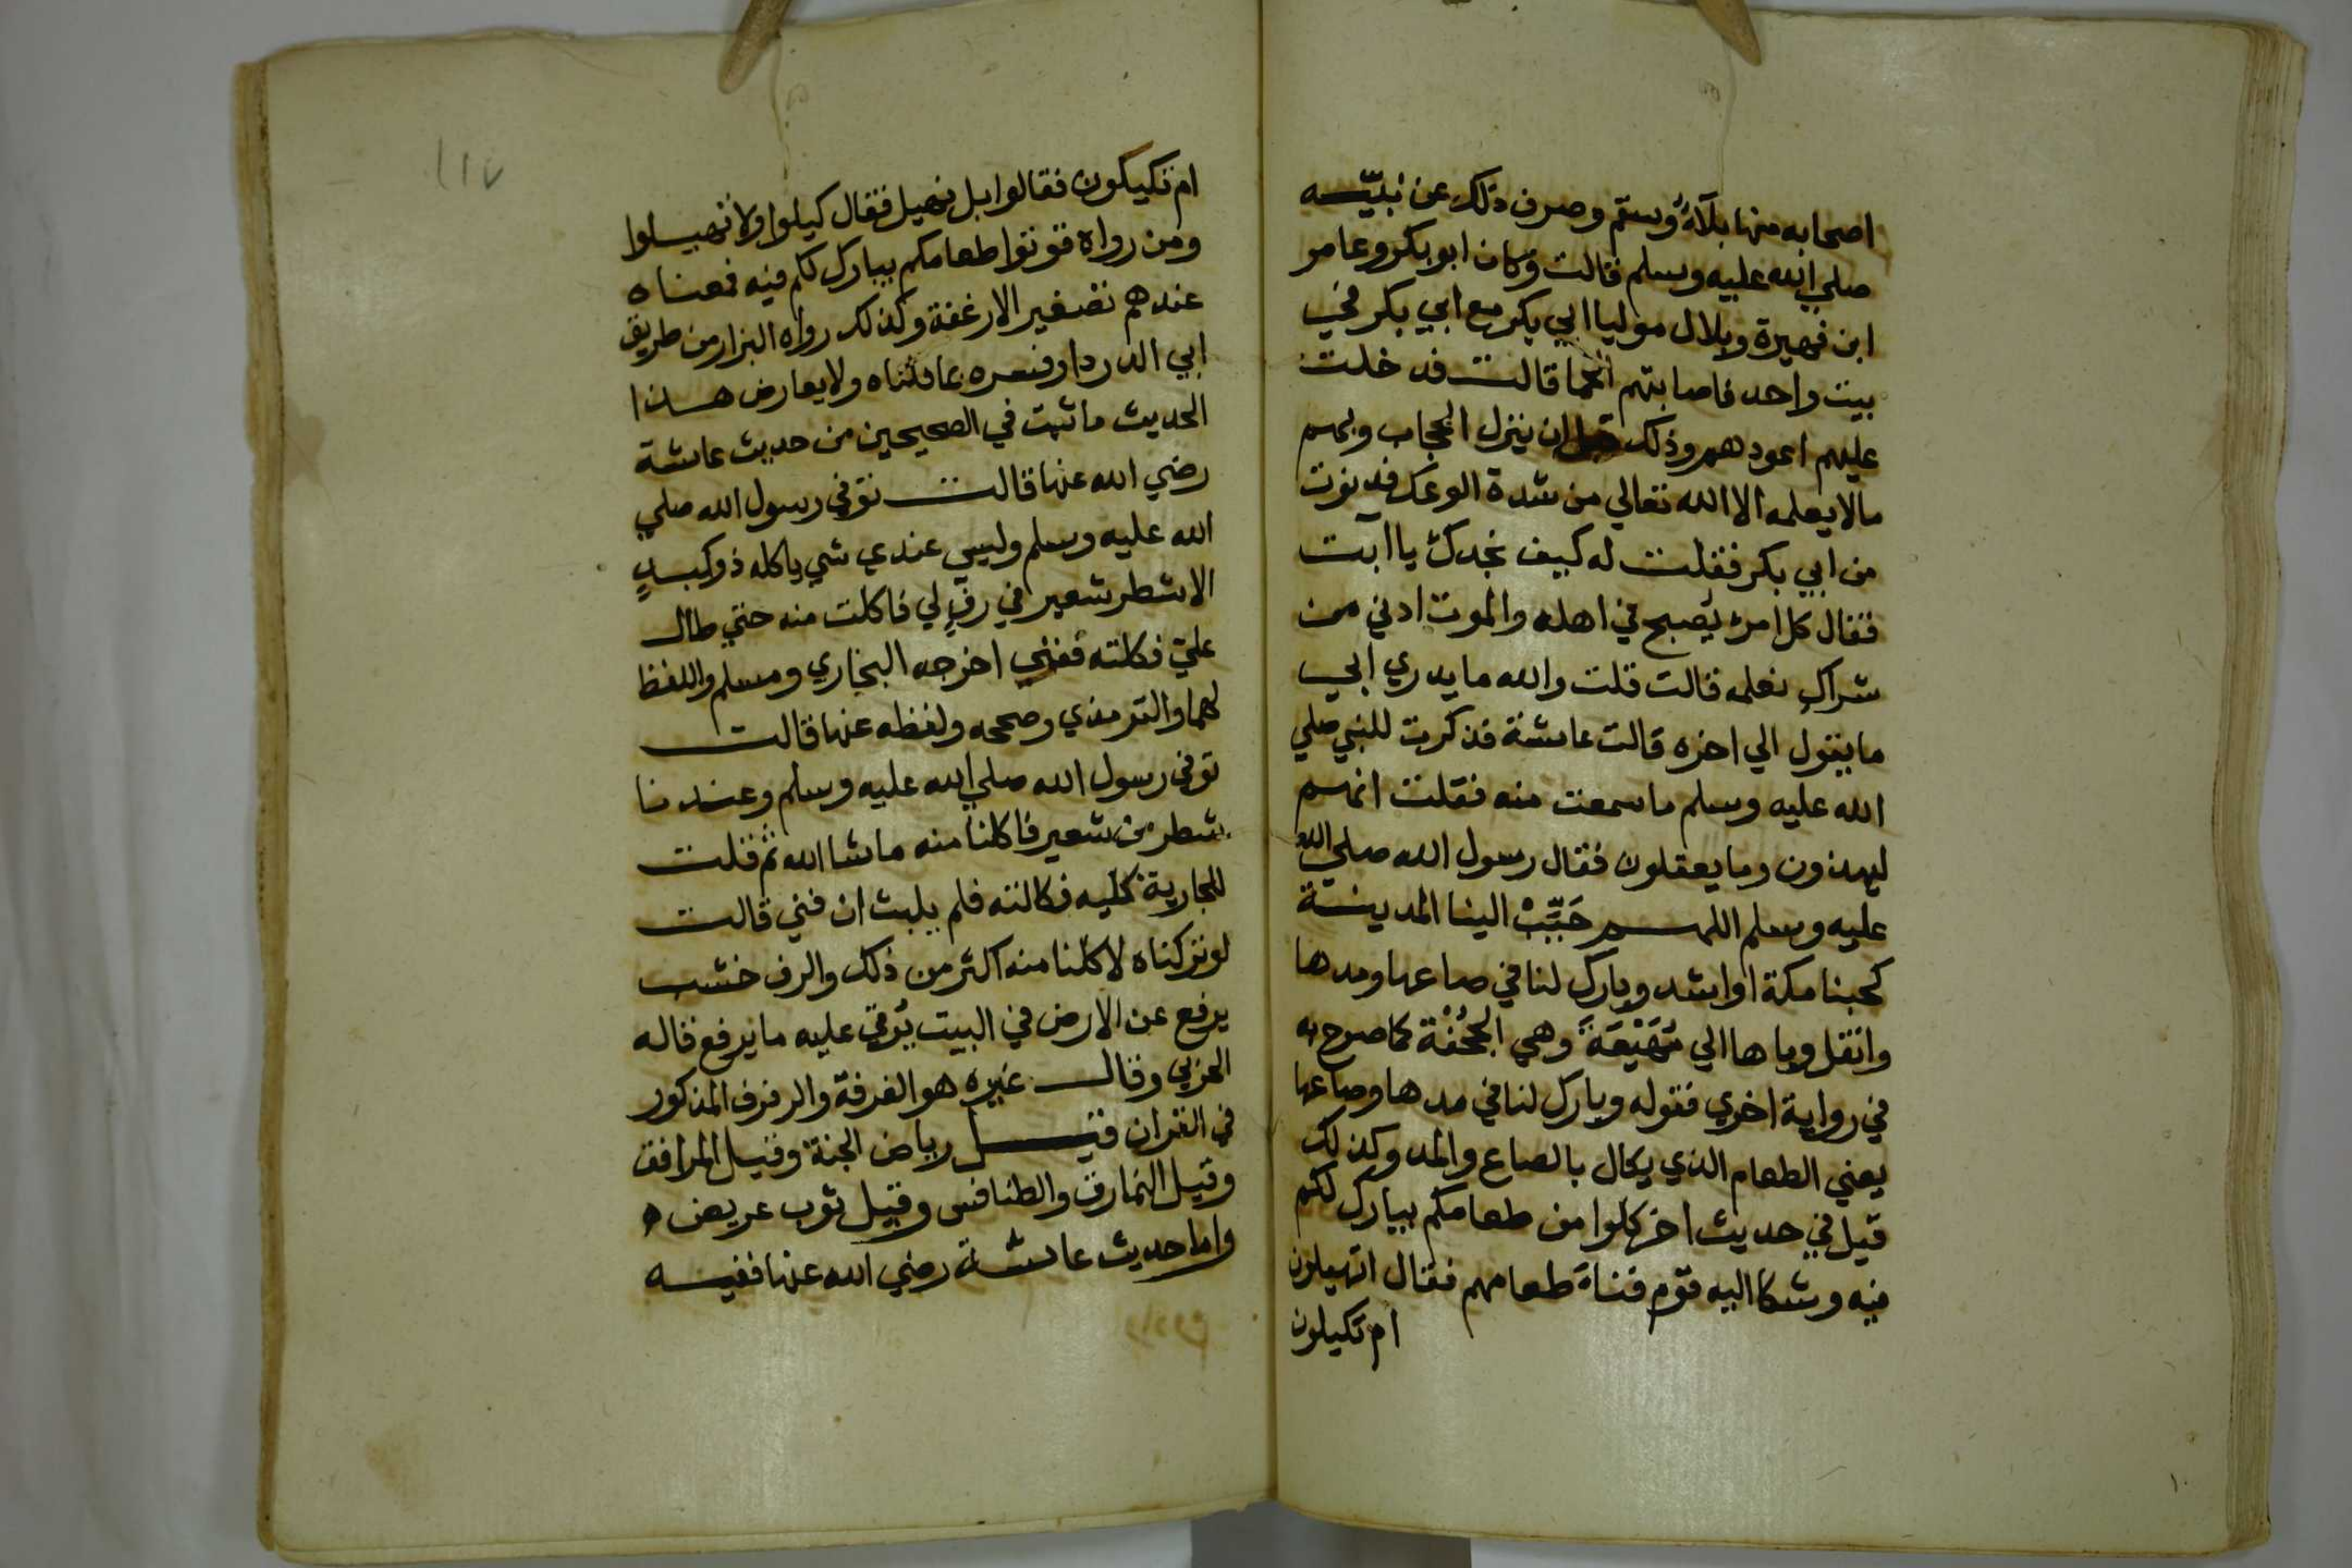 اصحابه منها بلآءٌ وسقم وصرف ذلك عن نبيّه
صلي الله عليه وسلم قالت وكان ابو بكر وعامر
ابن فهيرة وبلال موليا ابي بكر مع ابي بكر في
بيت واحد فاصابتهم الحما قالت فدخلت
عليهم اعودهم وذلك قبل ان ينزل الحجاب وبهم
مالا يعلمه الا الله تعالي من شدة الوعك فدنوت
من ابي بكر فقلت له كيف نجدك يا ابت
فقال كل امرئ يُصبح في اهله والموت ادني من
شراك نعله قالت قلت والله ما يدري ابي
ما يقول الي اخره قالت عائشة فذكرت للنبي صلي
الله عليه وسلم ما سمعت منه فقلت انهم
ليهذون وما يعقلون فقال رسول الله صلي الله
عليه وسلم اللهم حَبِّبْ الينا المدينة
كحبنا مكة او اشد وبارك لنا في صاعها ومدها
وانقل وباها الي مَهْيَعَةَ وهي الجُحْفَة كما صرح به
في رواية اخري فقوله وبارك لنا في مدها وصاعها
يعني الطعام الذي يكال بالصاع والمد وكذلك
قيل في حديث اخر كلوا من طعامكم يبارك لكم
فيه وشكا اليه قوم فناءَ طعامهم فقال اتهيلون
ام تكيلون
١١٧
ام تكيكون فقالوا بل نهيل فقال كيلوا ولا تهيلوا
ومن رواه قوتوا طعامكم يبارك لكم فيه فمعناه
عندهم تصغير الارغفة وكذلك رواه البزار من طريق
ابي الدردا وفسره بما قلناه ولا يعارض هذا
الحديث ما ثبت في الصحيحين من حديث عائشة
رضي الله عنها قالت توفي رسول الله صلي
الله عليه وسلم وليس عندي شي ياكله ذو كبدٍ
الا شطر شعير في رفٍ لي فاكلت منه حتي طال
عليّ فكلته ففني اخرجه البخاري ومسلم واللفظ
لهما والترمذي وصححه ولفظه عنها قالت
توفي رسول الله صلي الله عليه وسلم وعندنا
شطر من شعير فاكلنا منه ما شا الله ثم قلت
للجارية كيليه فكالته فلم يلبث ان فني قالت
لو تركناه لاكلنا منه اكثر من ذلك والرف خشب
يرفع عن الارض في البيت يُوقي عليه ما يرفع قاله
الحربي وقال غيره هو الغرفة والرفرف المذكور
في القران قيل رياض الجنة وقيل المرافق
وقيل النمارق والطنافس وقيل ثوب عريض ه
واما حديث عائشة رضي الله عنها ففيه